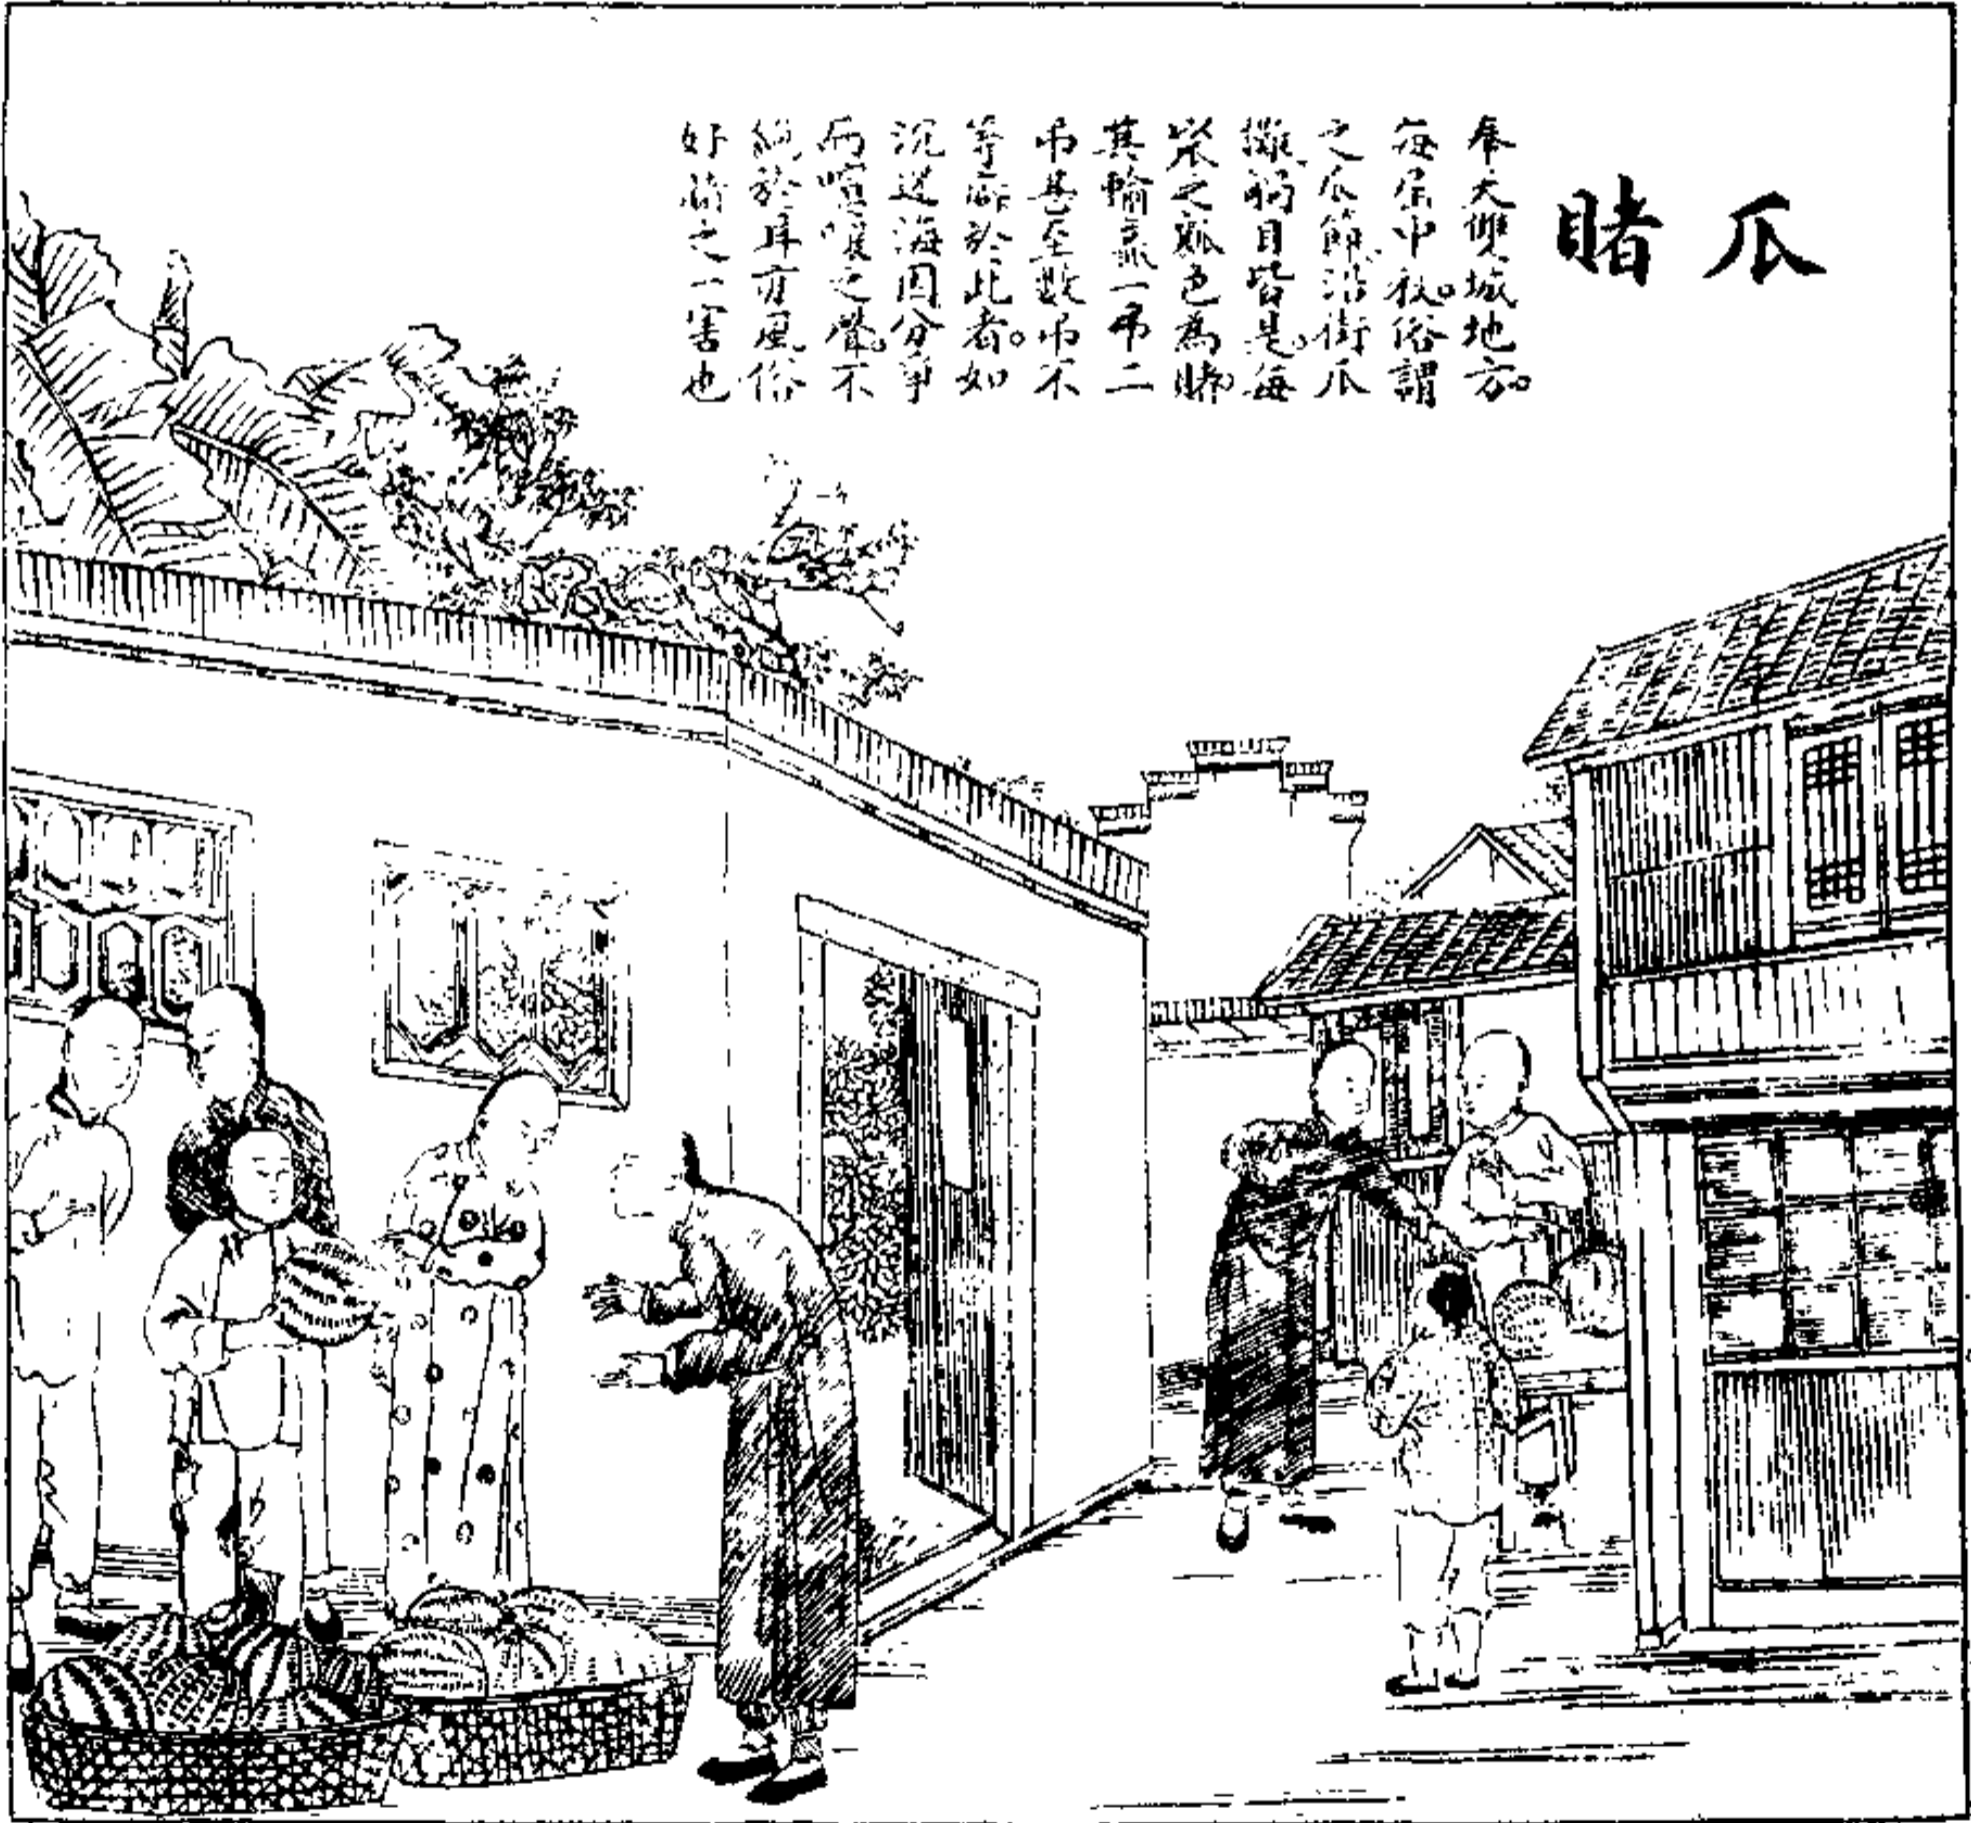 瓜賭
奉天雙城地方。
每屆中秋。俗謂
之瓜節、沿街瓜
攤、觸目皆是。每
之瓤色為賭。
其輸贏一吊二
吊甚至數吊不
等於此者。如
沉迷海因分爭
而喧嚷之聲。不
絕於耳亦風俗
好賭之一害也